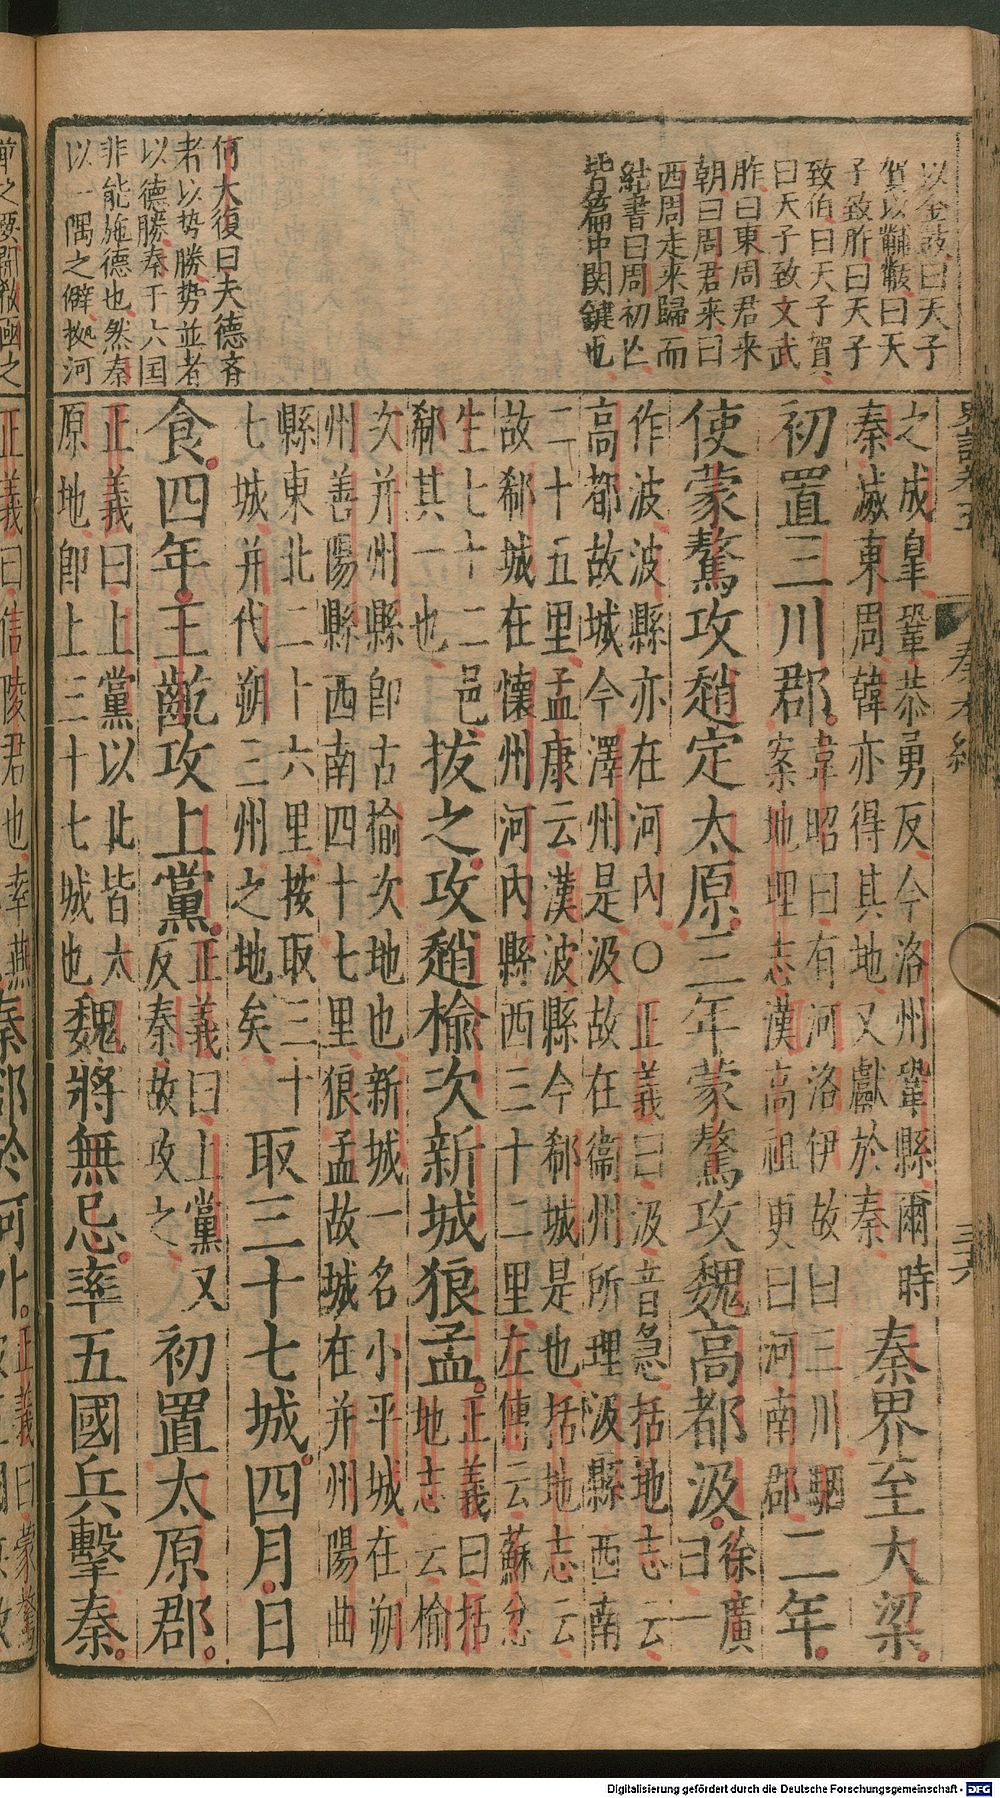 以金鼓曰天子
賀以黼黻曰天
子致胙曰天子
致伯曰天子賀
曰天子致文武
胙曰東周君来
朝曰周君来曰
西周走来歸而
結書曰周初亡
皆篇中関鍵也
何大復曰夫德齊
者以势勝势並者
以德勝秦于六国
非能施德也然秦
以一隅之僻拠河
之成皐鞏恭勇反今洛州鞏縣爾時
秦滅東周韓亦得其地又獻於秦
秦界至大梁
初置三川郡
韋昭曰有河洛伊故曰三川駰
案地理志漢高祖更曰河南郡
二年
使蒙驁攻趙定太原三年蒙驁攻魏高都汲
徐廣
曰一
作波波縣亦在河內○正義曰汲音急括地志云
高都故城今澤州是汲故在衞州所理汲縣西南
二十五里孟康云漢波縣今郗城是也括地志云
故郗城在懷州河內縣西三十二里左傳云蘇忿
生七十二邑
郗其一也
拔之攻趙榆次新城狼孟
正義曰括
地志云榆
次并州縣卽古榆次地也新城一名小平城在朔
州善陽縣西南四十七里狼孟故城在并州陽曲
縣東北二十六里按取三十
七城并代朔三州之地矣
取三十七城四月日
食四年王齕攻上黨
正義曰上黨又
反秦故攻之
初置太原郡
正義曰上黨以北皆太
原地卽上三十七城也
魏將無忌率五國兵擊秦
正義曰信陵君也率燕
秦郤於河外
正義曰蒙驁
Digitalisierung gefördert durch die Deutsche Forschungsgemeinschaft - DFG